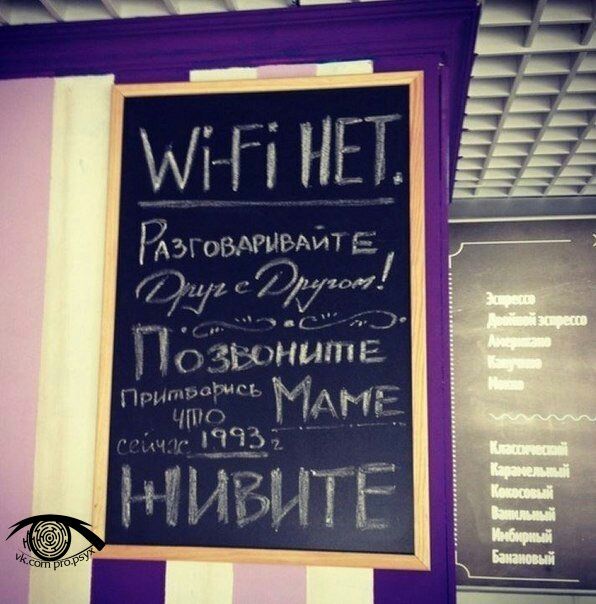 Wi-Fi НЕТ.
РАЗГОВАРИВАЙТЕ
Друг с Другом!
ПОЗВОНИТЕ
МАМЕ
Притворись
что
сейчас 1993 г
ЖИВИТЕ
Эспрессо
Двойной эспрессо
Американо
Капучино
Мокко
Классический
Карамельный
Кокосовый
Ванильный
Имбирный
Банановый
vk.com pro.psyx